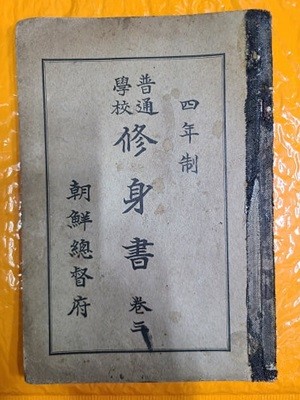 四年制
普通
學校
修身書 卷三
朝鮮總督府